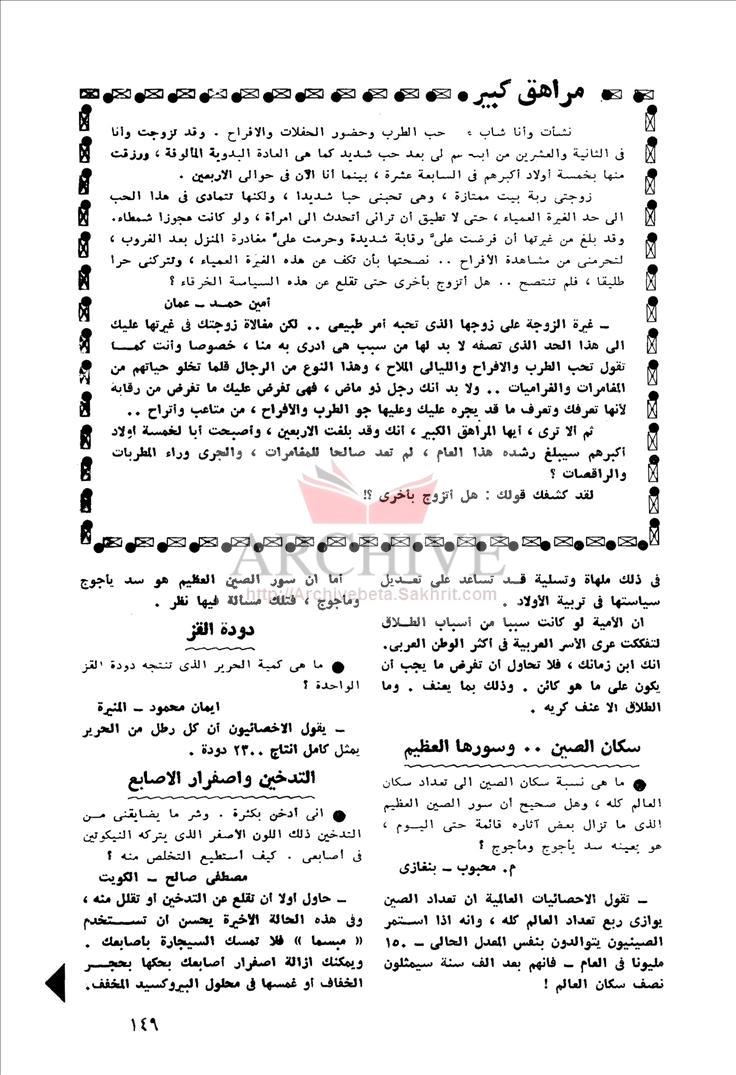 مراهق كبير
نشأت وأنا شاب حب الطرب وحضور الحفلات والافراح . وقد تزوجت وأنا
فى الثانية والعشرين من لى بعد حب شديد كما هى العادة البدوية المألوفة ، ورزقت
منها بخمسة أولاد أكبرهم فى السابعة عشرة ، بينما أنا الآن فى حوالى الاربعين .
زوجتى ربة بيت ممتازة ، وهى تحبنى حبا شديدا ، ولكنها تتمادى فى هذا الحب
الى حد الغيرة العمياء ، حتى لا تطيق أن ترانى أتحدث الى امرأة ، ولو كانت عجوزا شمطاء.
وقد بلغ من غيرتها أن فرضت علىَّ رقابة شديدة وحرمت علىَّ مغادرة المنزل بعد الغروب ،
لتحرمنى من مشاهدة الافراح .. نصحتها بأن تكف عن هذه الغيرة العمياء ، وتتركنى حرا
طليقا ، فلم تنتصح .. هل أتزوج بأخرى حتى تقلع عن هذه السياسة الخرقاء ؟
أمين حمد ــ عمان
ــ غيرة الزوجة على زوجها الذى تحبه أمر طبيعى .. لكن مغالاة زوجتك فى غيرتها عليك
الى هذا الحد الذى تصفه لا بد لها من سبب هى ادرى به منا ، خصوصا وأنت كما
تقول تحب الطرب والافراح والليالى الملاح ، وهذا النوع من الرجال قلما تخلو حياتهم من
المغامرات والغراميات .. ولا بد أنك رجل ذو ماض ، فهى تفرض عليك ما تفرض من رقابة
لأنها تعرفك وتعرف ما قد يجره عليك وعليها جو الطرب والأفراح ، من متاعب وأتراح ..
ثم ألا ترى ، أيها المراهق الكبير ، أنك وقد بلغت الاربعين ، وأصبحت أبا لخمسة أولاد
أكبرهم سيبلغ رشده هذا العام ، لم تعد صالحا للمغامرات ، والجرى وراء المطربات
والراقصات ؟
لقد كشفك قولك : هل أتزوج بأخرى ؟!
ARCHIVE
http://Archivebeta.Sakhrit.com
فى ذلك ملهاة وتسلية قد تساعد على تعديل
سياستها فى تربية الأولاد .
ان الأمية لو كانت سببا من أسباب الطلاق
لتفككت عرى الأسر العربية فى أكثر الوطن العربى.
انك ابن زمانك ، فلا تحاول أن تفرض ما يجب أن
يكون على ما هو كائن . وذلك بما يعنف . وما
الطلاق الا عنف كريه .
سكان الصين .. وسورها العظيم
● ما هى نسبة سكان الصين الى تعداد سكان
العالم كله ، وهل صحيح أن سور الصين العظيم
الذى ما تزال بعض آثاره قائمة حتى اليوم ،
هو بعينه سد يأجوج ومأجوج ؟
م. محبوب ــ بنغازى
ــ تقول الاحصائيات العالمية ان تعداد الصين
يوازى ربع تعداد العالم كله ، وانه اذا استمر
الصينيون يتوالدون بنفس المعدل الحالى ــ ١٥٠
مليونا فى العام ــ فانهم بعد الف سنة سيمثلون
نصف سكان العالم !
أما ان سور الصين العظيم هو سد يأجوج
ومأجوج ، فتلك مسألة فيها نظر .
دودة القز
● ما هى كمية الحرير الذى تنتجه دودة القز
الواحدة ؟
ايمان محمود ــ المنيرة
ــ يقول الاخصائيون أن كل رطل من الحرير
يمثل كامل انتاج ٢٣٠٠ دودة .
التدخين واصفرار الاصابع
● انى أدخن بكثرة . وشر ما يضايقنى من
التدخين ذلك اللون الاصفر الذى يتركه النيكوتين
فى أصابعى . كيف أستطيع التخلص منه ؟
مصطفى صالح ــ الكويت
ــ حاول أولا أن تقلع عن التدخين أو تقلل منه ،
وفى هذه الحالة الأخيرة يحسن ان تستخدم
« مبسما » فلا تمسك السيجارة بأصابعك .
ويمكنك ازالة اصفرار أصابعك بحكها بحجر
الخفاف أو غمسها فى محلول البيروكسيد المخفف.
١٤٩